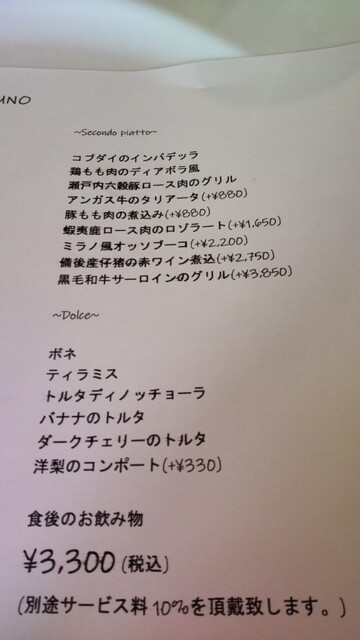 UNO
~Secondo piatto~
コブダイのインパデッラ
鶏もも肉のディアボラ風
瀬戸内六穀豚ロース肉のグリル
アンガス牛のタリアータ(+¥880)
豚もも肉の煮込み(+¥880)
蝦夷鹿ロース肉のロゾラート(+¥1,650)
ミラノ風オッソブーコ(+¥2,200)
備後産仔猪の赤ワイン煮込(+¥2,750)
黒毛和牛サーロインのグリル(+¥3,850)
~Dolce~
ボネ
ティラミス
トルタディノッチョーラ
バナナのトルタ
ダークチェリーのトルタ
洋梨のコンポート(+¥330)
食後のお飲み物
¥3,300(税込)
(別途サービス料10%を頂戴致します。)